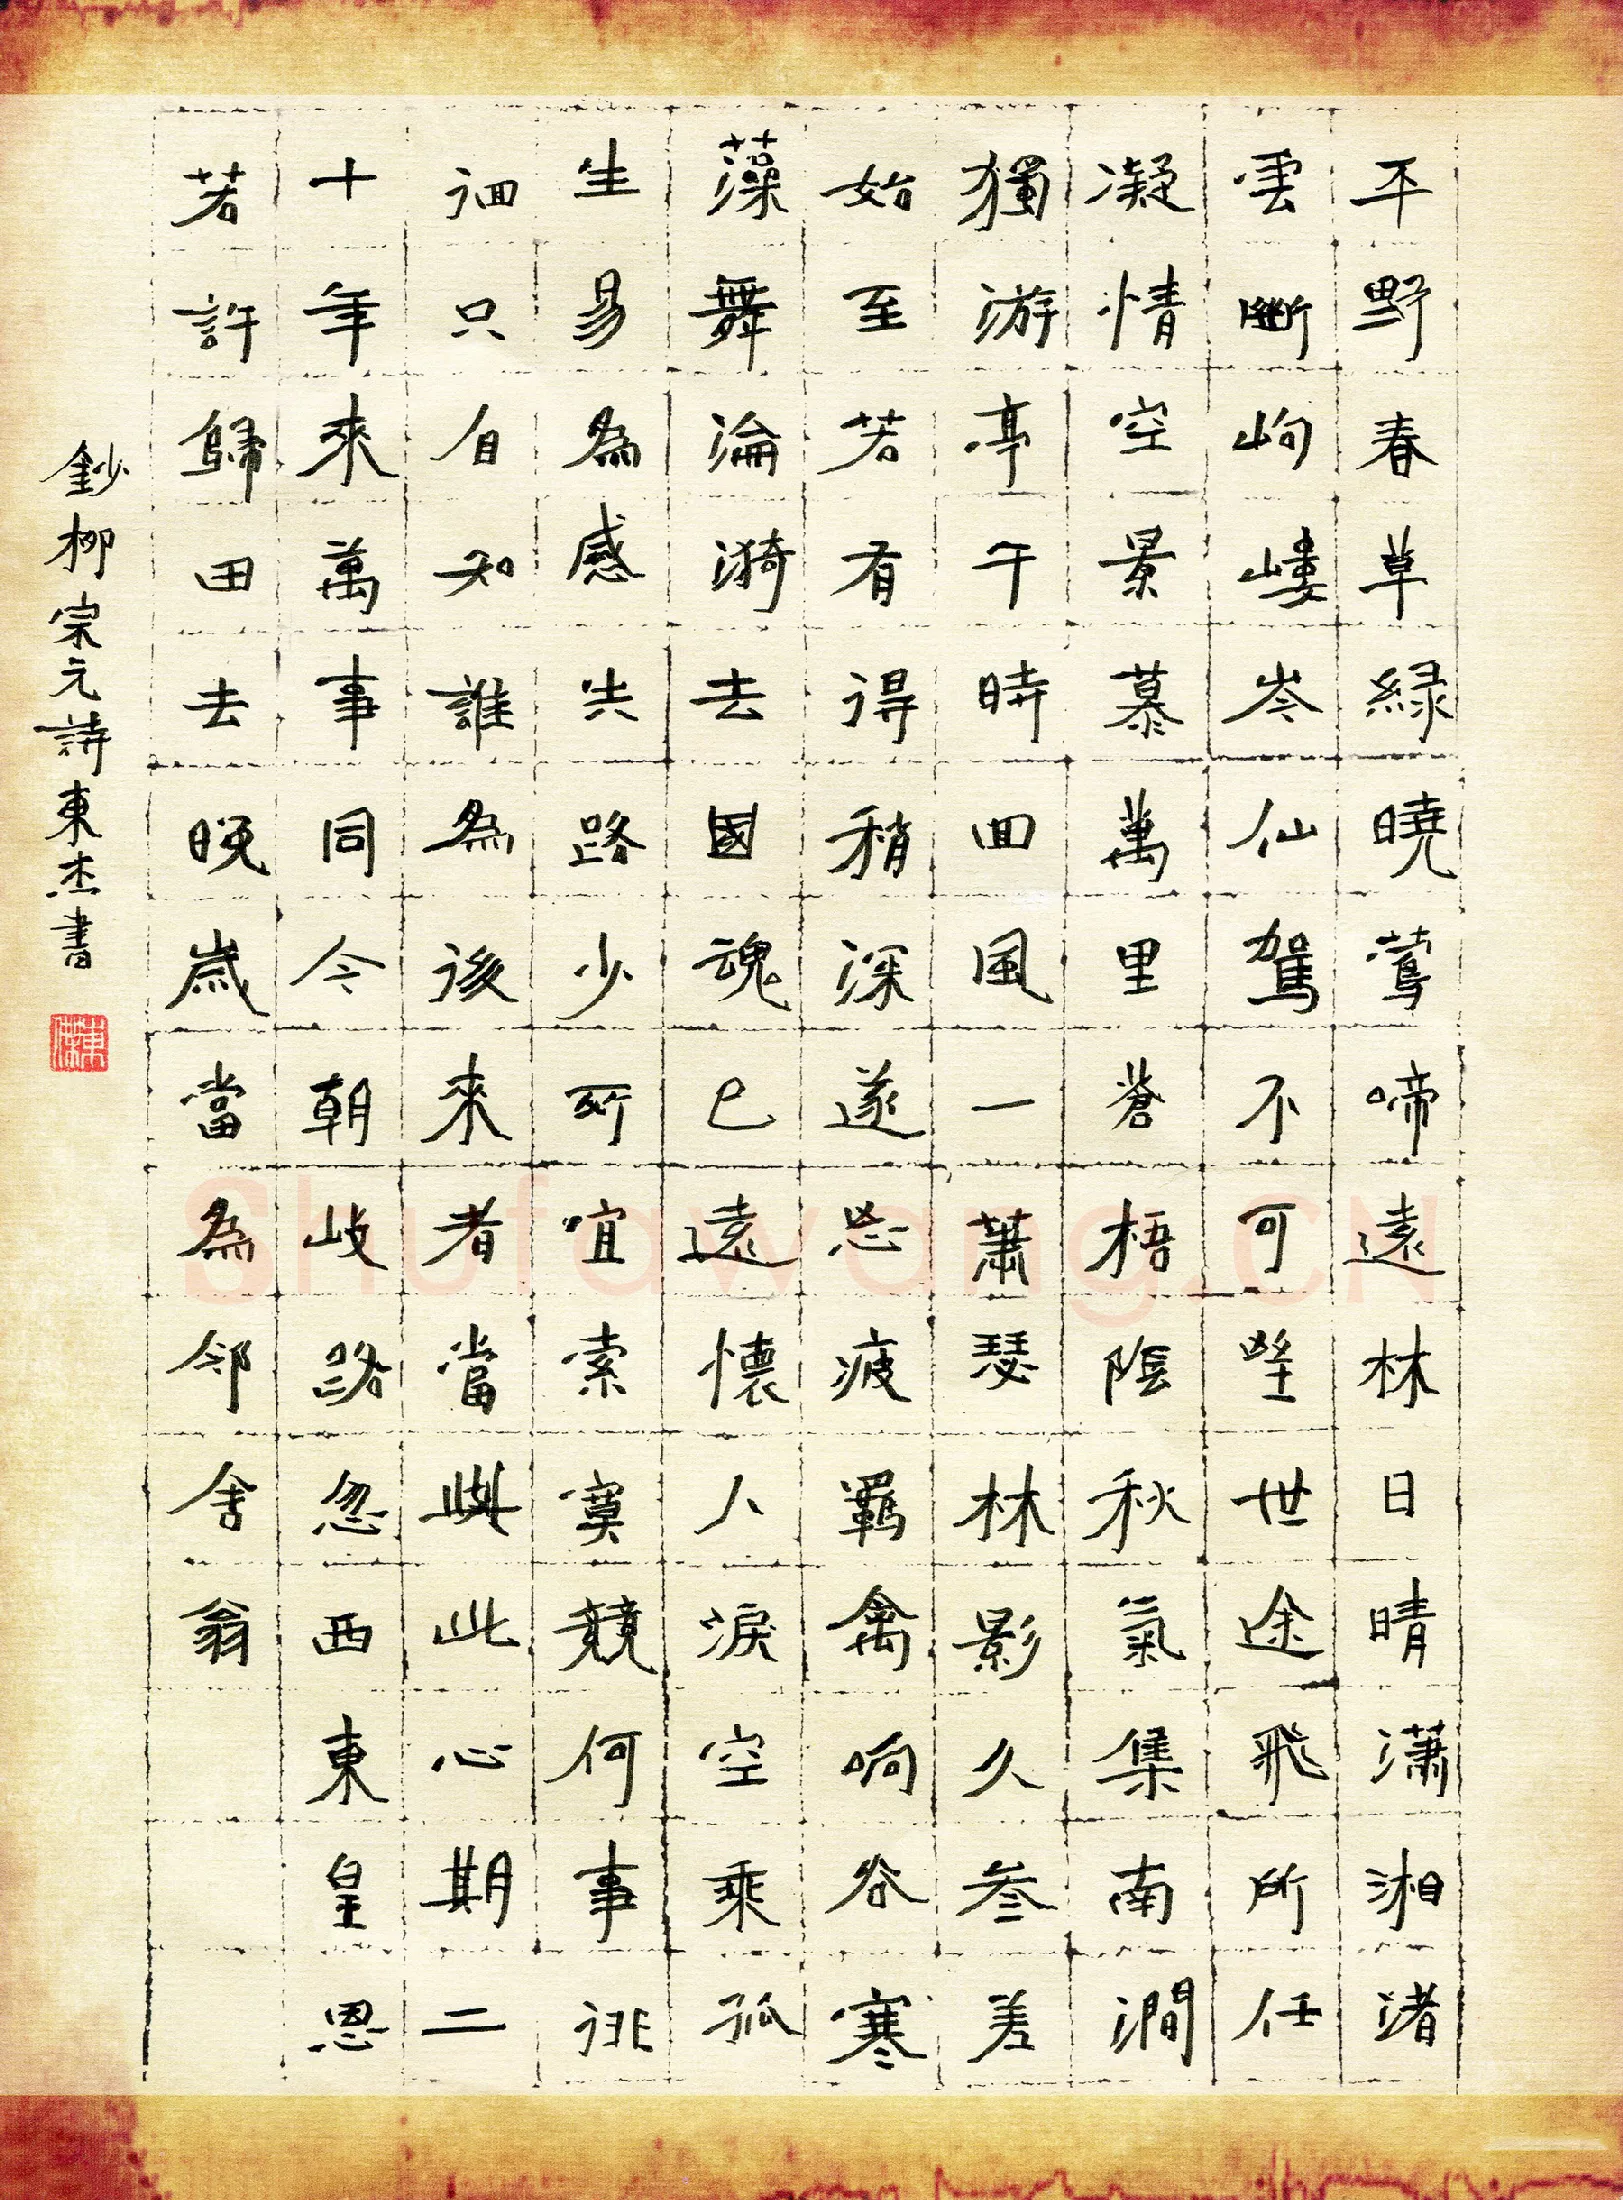 平野春草緑曉鶯啼遠林日晴瀟湘渚
雲斷岣嶁岑仙駕不可望世途飛所任
凝情空景慕萬里蒼梧陰秋氣集南澗
獨游亭午時回風一蕭瑟林影久參差
始至若有得稍深遂忘疲羈禽响谷寒
藻舞淪漪去國魂已遠懷人淚空乘孤
生易為感失路少所宜索寞競何事徘
徊只自知誰為後來者當與此心期二
十年來萬事同今朝岐路忽西東皇恩
若許歸田去晚歲當為鄰舍翁
鈔柳宗元詩東杰書
Shufawang.CN